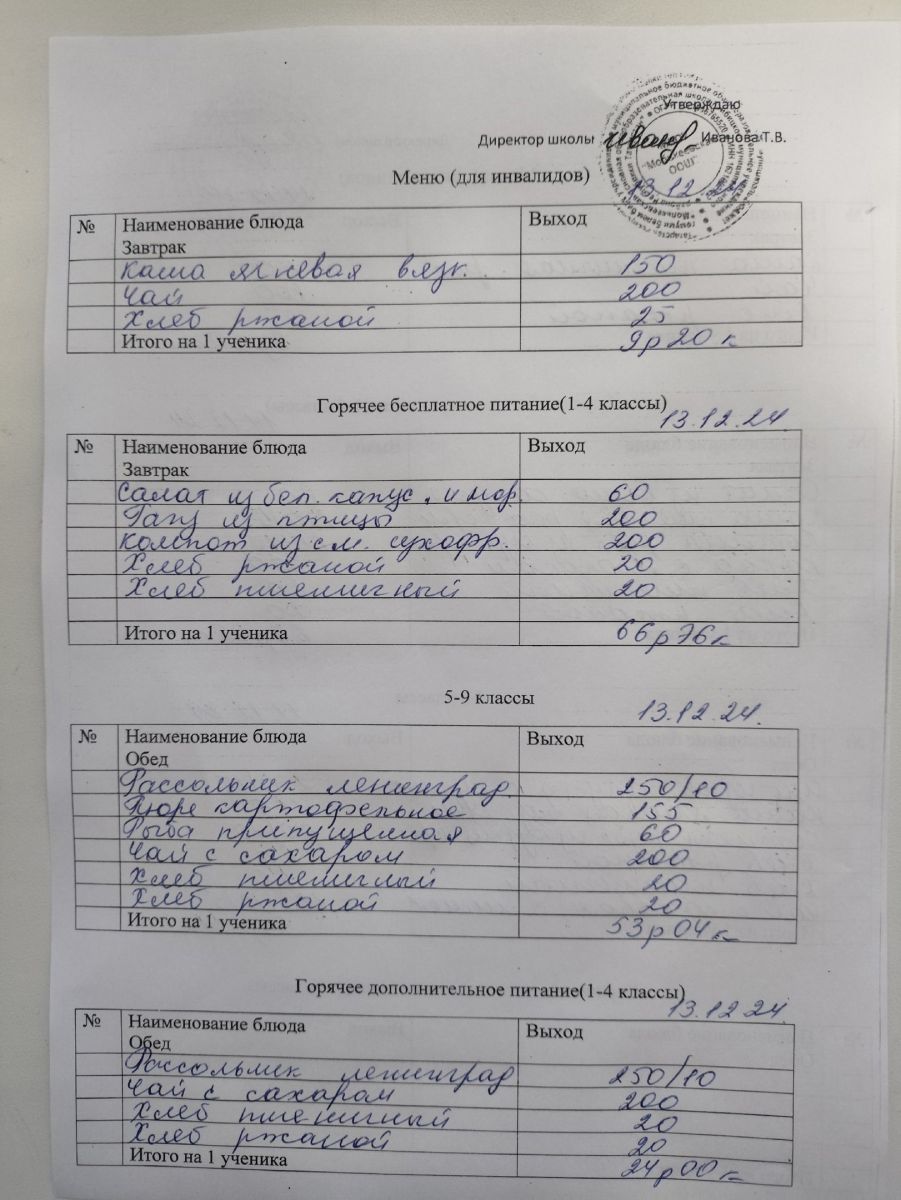 Утверждаю
Директор школы Иванова Т.В.
"Молькеевская
ООШ"
Меню (для инвалидов) 13.12
№ Наименование блюда Выход
Завтрак
Каша ячневая вязк. 150
Чай 200
Хлеб ржаной 25
Итого на 1 ученика 9р20к
Горячее бесплатное питание(1-4 классы)
13.12.24.
№ Наименование блюда Выход
Завтрак
Салат из бел. капус. и мор. 60
из птицы 200
Компот из см. сухофр. 200
Хлеб ржаной 20
Хлеб пшеничный 20
Итого на 1 ученика 66р76к
5-9 классы
13.12.24.
№ Наименование блюда Выход
Обед
Рассольник ленинград. 250/10
Пюре картофельное 155
Рыба припущенная 60
Чай с сахаром 200
Хлеб пшеничный 20
Хлеб ржаной 20
Итого на 1 ученика 53р04к
Горячее дополнительное питание(1-4 классы)
13.12.24.
№ Наименование блюда Выход
Обед
Рассольник ленинград 250/10
Чай с сахаром 200
Хлеб пшеничный 20
Хлеб ржаной 20
Итого на 1 ученика 24р00к